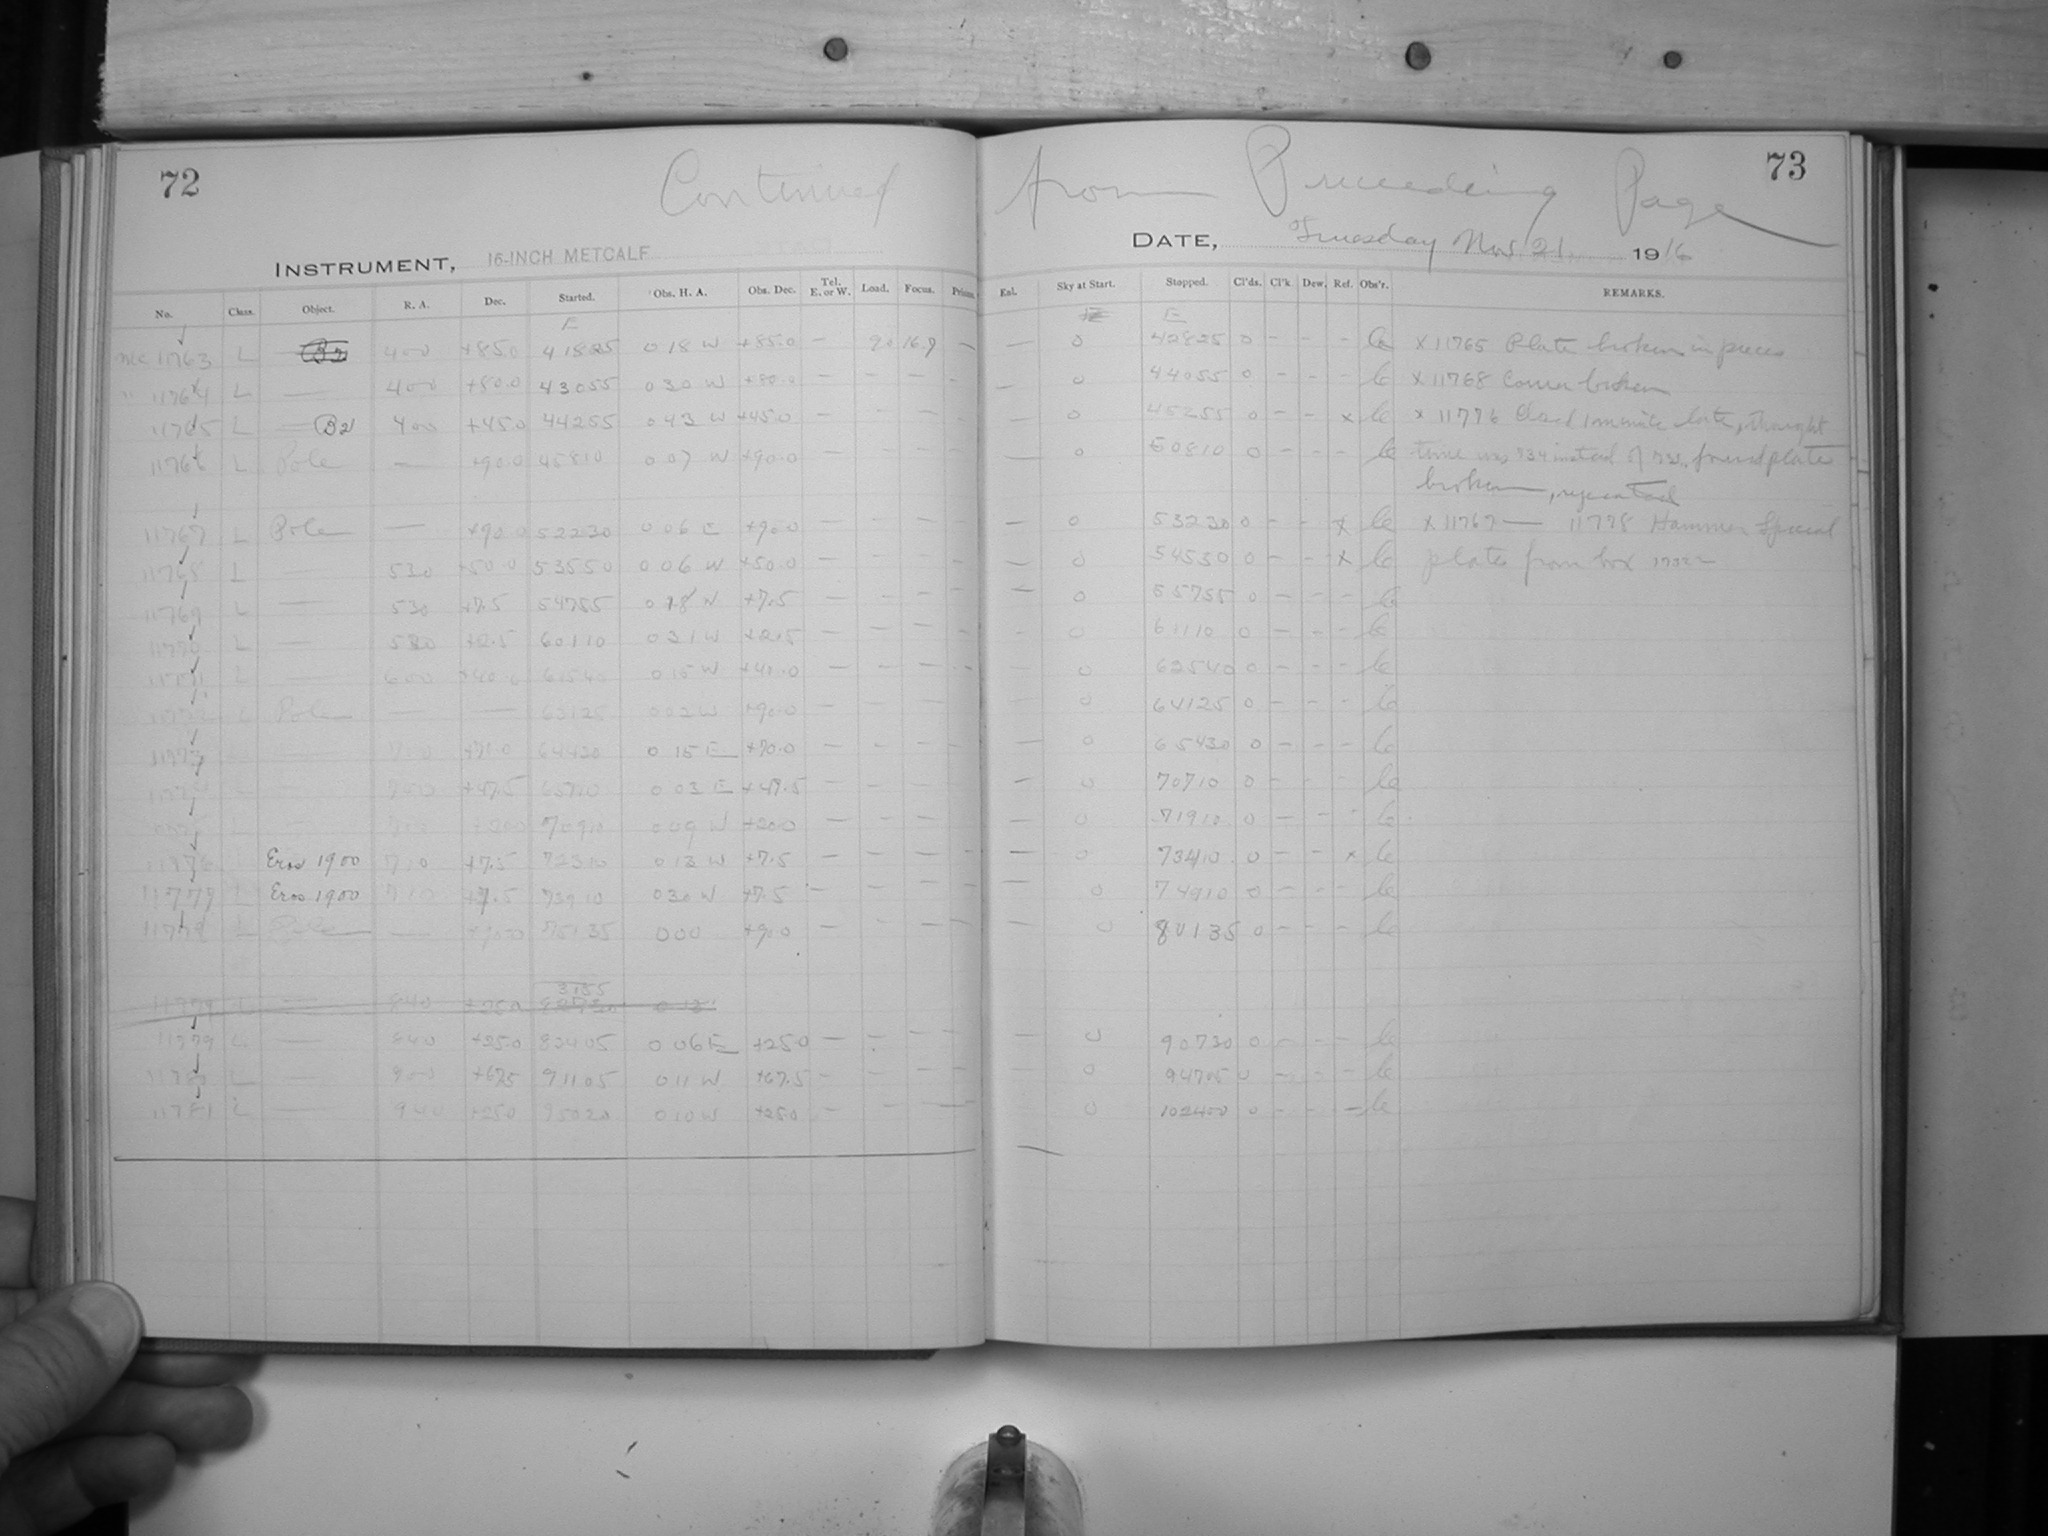 72
73
Continued from Preceeding Page
INSTRUMENT, 16-INCH METCALF
DATE, Tuesday Nov 21, 1916
No. Class. Object. R. A. Dec. Started. Obs. H. A. Obs. Dec. Tel. E. or W. Load. Focus. Prism. Exl. Sky at Start. Stopped. Cl'ds. Cl'k Dew. Ref. Obs'r. REMARKS.
E E
MC 11763 L 400 +85.0 41825 0 18 W +85.0 — 90 16.9 — — 0 42825 0 - - - le x 11765 Plate broken in pieces
" 11764 L — 400 +80.0 43055 0 30 W +80.0 — — — - — 0 44055 0 - - - le x 11768 Corner broken
11765 L — B2 400 +45.0 44255 0 43 W +45.0 — — — - — 0 45255 0 - - x le x 11776 Closed 1 minute late, thought
11766 L Pole — +90.0 45810 0 07 W +90.0 — — — - — 0 50810 0 - - - le time was 734 instead of 733, found plate
broken, repeated
11767 L Pole — +90.0 52230 0 06 E +90.0 — — — - — 0 53230 0 - - x le x 11767 — 11778 Hammer Special
11768 L — 530 +50.0 53550 0 06 W +50.0 — — — - — 0 54530 0 - - x le plates from box
11769 L — 530 +7.5 54755 0 18 W +7.5 — — — - — 0 55755 0 - - - le
11770 L — 530 +2.5 60110 0 31 W +2.5 — — — - — 0 61110 0 - - - le
11771 L — 600 +40.0 61540 0 15 W +40.0 — — — - — 0 62540 0 - - - le
11772 L Pole — — 63125 0 02 W +90.0 — — — - — 0 64125 0 - - - le
11773 — 710 +70.0 64430 0 15 E +70.0 — — — - — 0 65430 0 - - - le
11774 L — 700 +47.5 65710 0 03 E +47.5 — — — - — 0 70710 0 - - - le
11775 L — 700 +20.0 70910 0 09 W +20.0 — — — - — 0 71910 0 - - - le
11776 Eros 1900 710 +7.5 72310 0 13 W +7.5 — — — — — 0 73410 0 - - x le
11777 L Eros 1900 710 +7.5 73910 0 30 W +7.5 — — — — — 0 74910 0 - - - le
11778 L Pole — +90.0 75135 0 00 +90 — — — — 0 80135 0 - - - le
3155
11779 L — 840 +25.0 0 12
11779 L — 840 +25.0 83405 0 06 E +25.0 — — — — — 0 90730 0 - - - le
11780 L — 900 +67.5 91105 0 11 W +67.5 — — — — — 0 94705 0 - - - le
11781 L — 940 +25.0 95020 0 10 W +25.0 — — — — 0 102400 0 - - — le